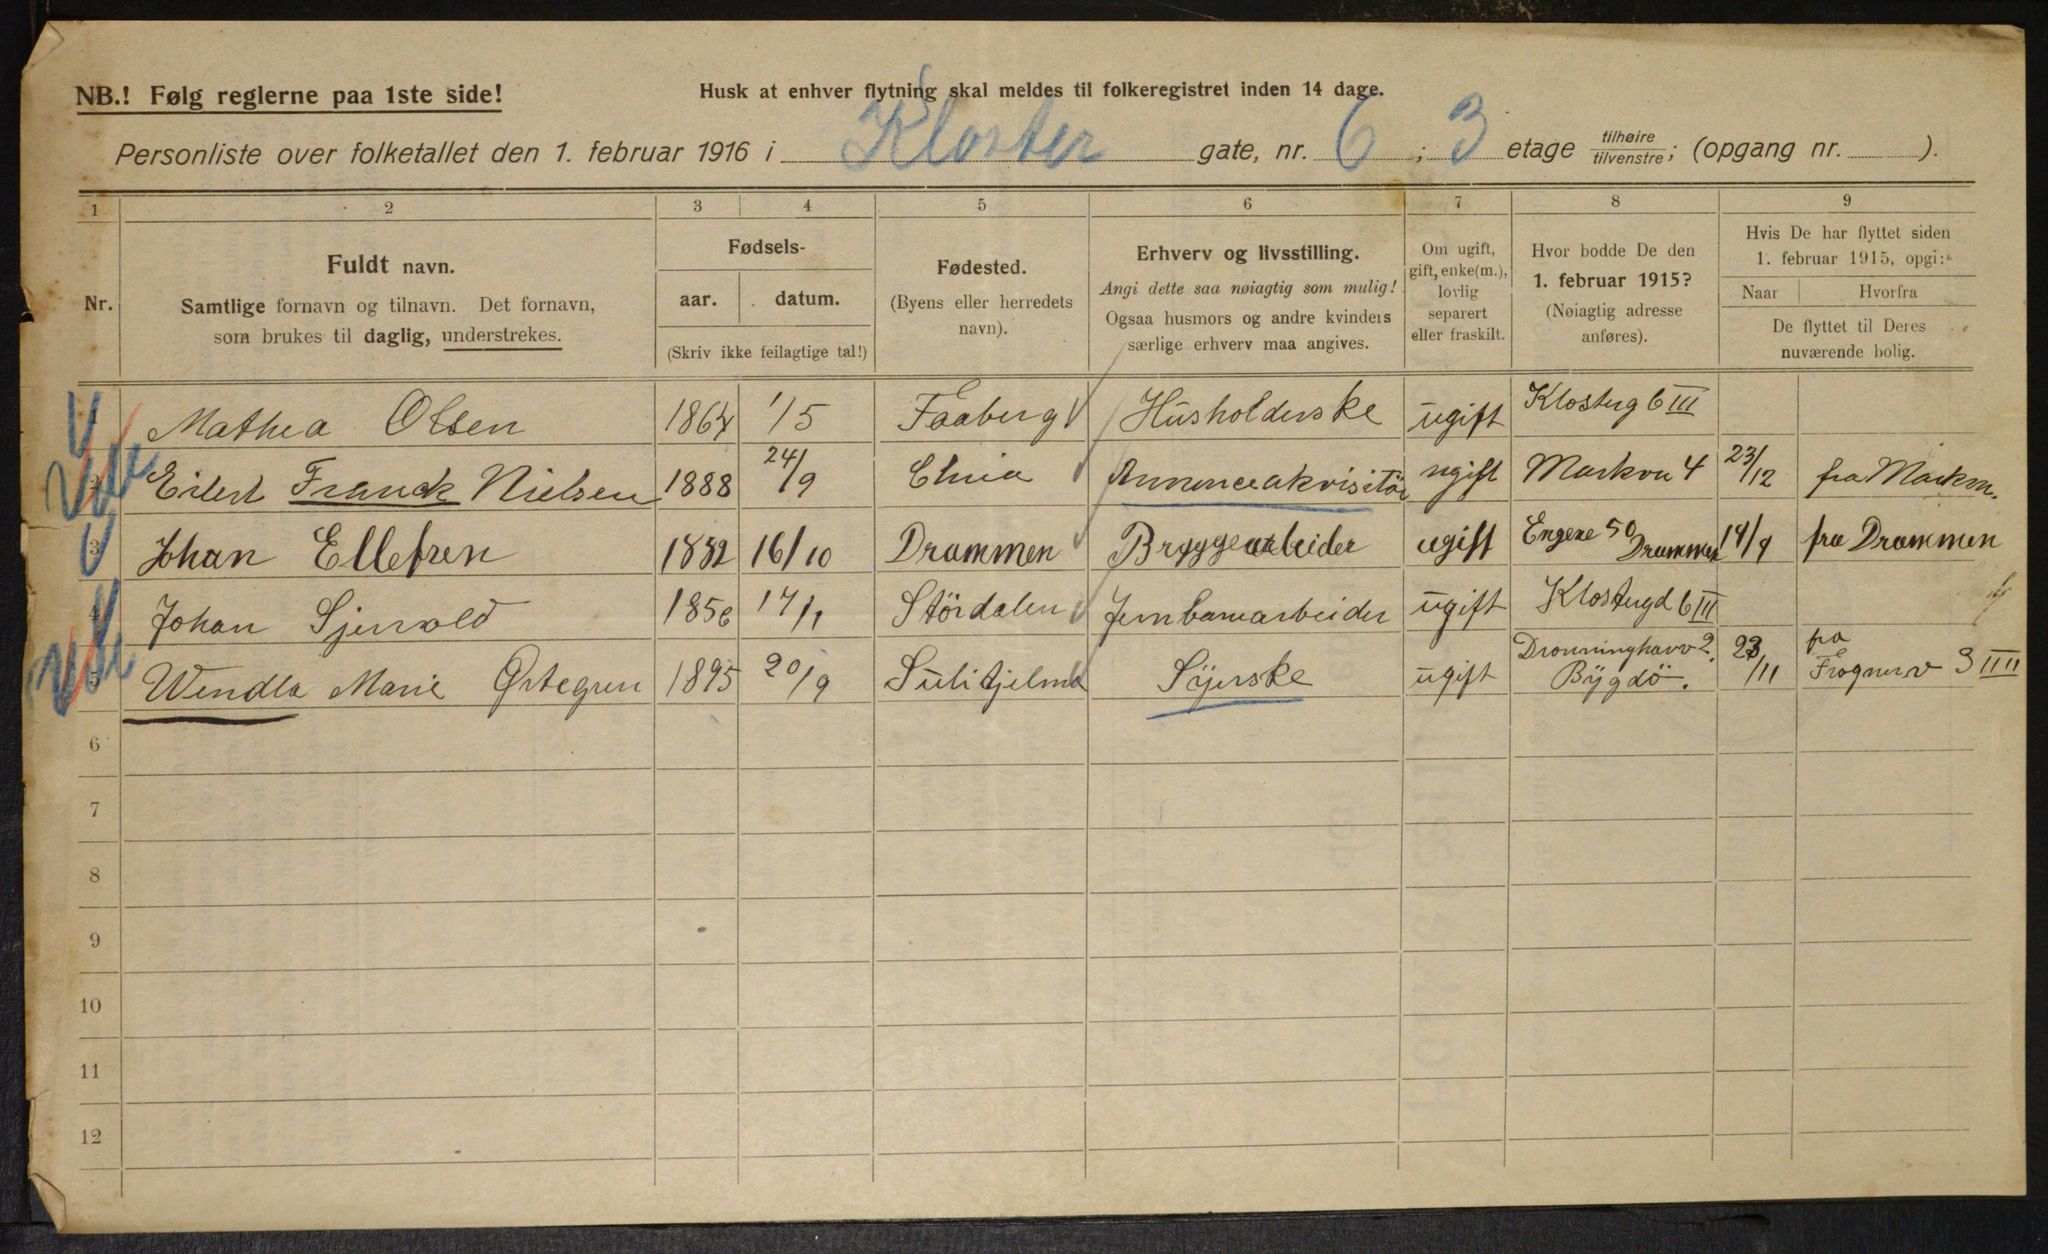 NB.! Følg reglerne paa 1ste side!
Husk at enhver flytning skal meldes til folkeregistret inden 14 dage.
Personliste over folketallet den 1. februar 1916 i Kloster gate, nr. 6 ; 3 etage tilhøire / tilvenstre; (opgang nr. ).
1 2 3 4 5 6 7 8 9
Nr.
Fuldt navn.
Samtlige fornavn og tilnavn. Det fornavn,
som brukes til daglig, understrekes.
Fødsels-
aar. datum.
(Skriv ikke feilagtige tal!)
Fødested.
(Byens eller herredets
navn).
Erhverv og livsstilling.
Angi dette saa nøiagtig som mulig!
Ogsaa husmors og andre kvinders
særlige erhverv maa angives.
Om ugift,
gift, enke(m.),
lovlig
separert
eller fraskilt.
Hvor bodde De den
1. februar 1915?
(Nøiagtig adresse
anføres).
Hvis De har flyttet siden
1. februar 1915, opgi:
Naar Hvorfra
De flyttet til Deres
nuværende bolig.
Mathea Olsen 1864 1/5 Faaberg Husholderske ugift Klosterg 6 III
2 Eilert Franck Nielsen 1888 24/9 Chria Annonceakvisitör ugift Markvn 4 23/12 fra Markvn.
3 Johan Ellefsen 1852 16/10 Drammen Bryggearbeider ugift Engene 50 Drammen 14/9 fra Drammen
4 Johan Sjervold 1856 17/1 Stördalen Jernbanearbeider ugift Klostergd 6 III
5 Wendla Marie Østegren 1895 20/9 Sulitjelma Syerske ugift Dronninghavv 2. Bygdö. 23/11 fra Frognerv 3 IIII
6
7
8
9
10
11
12